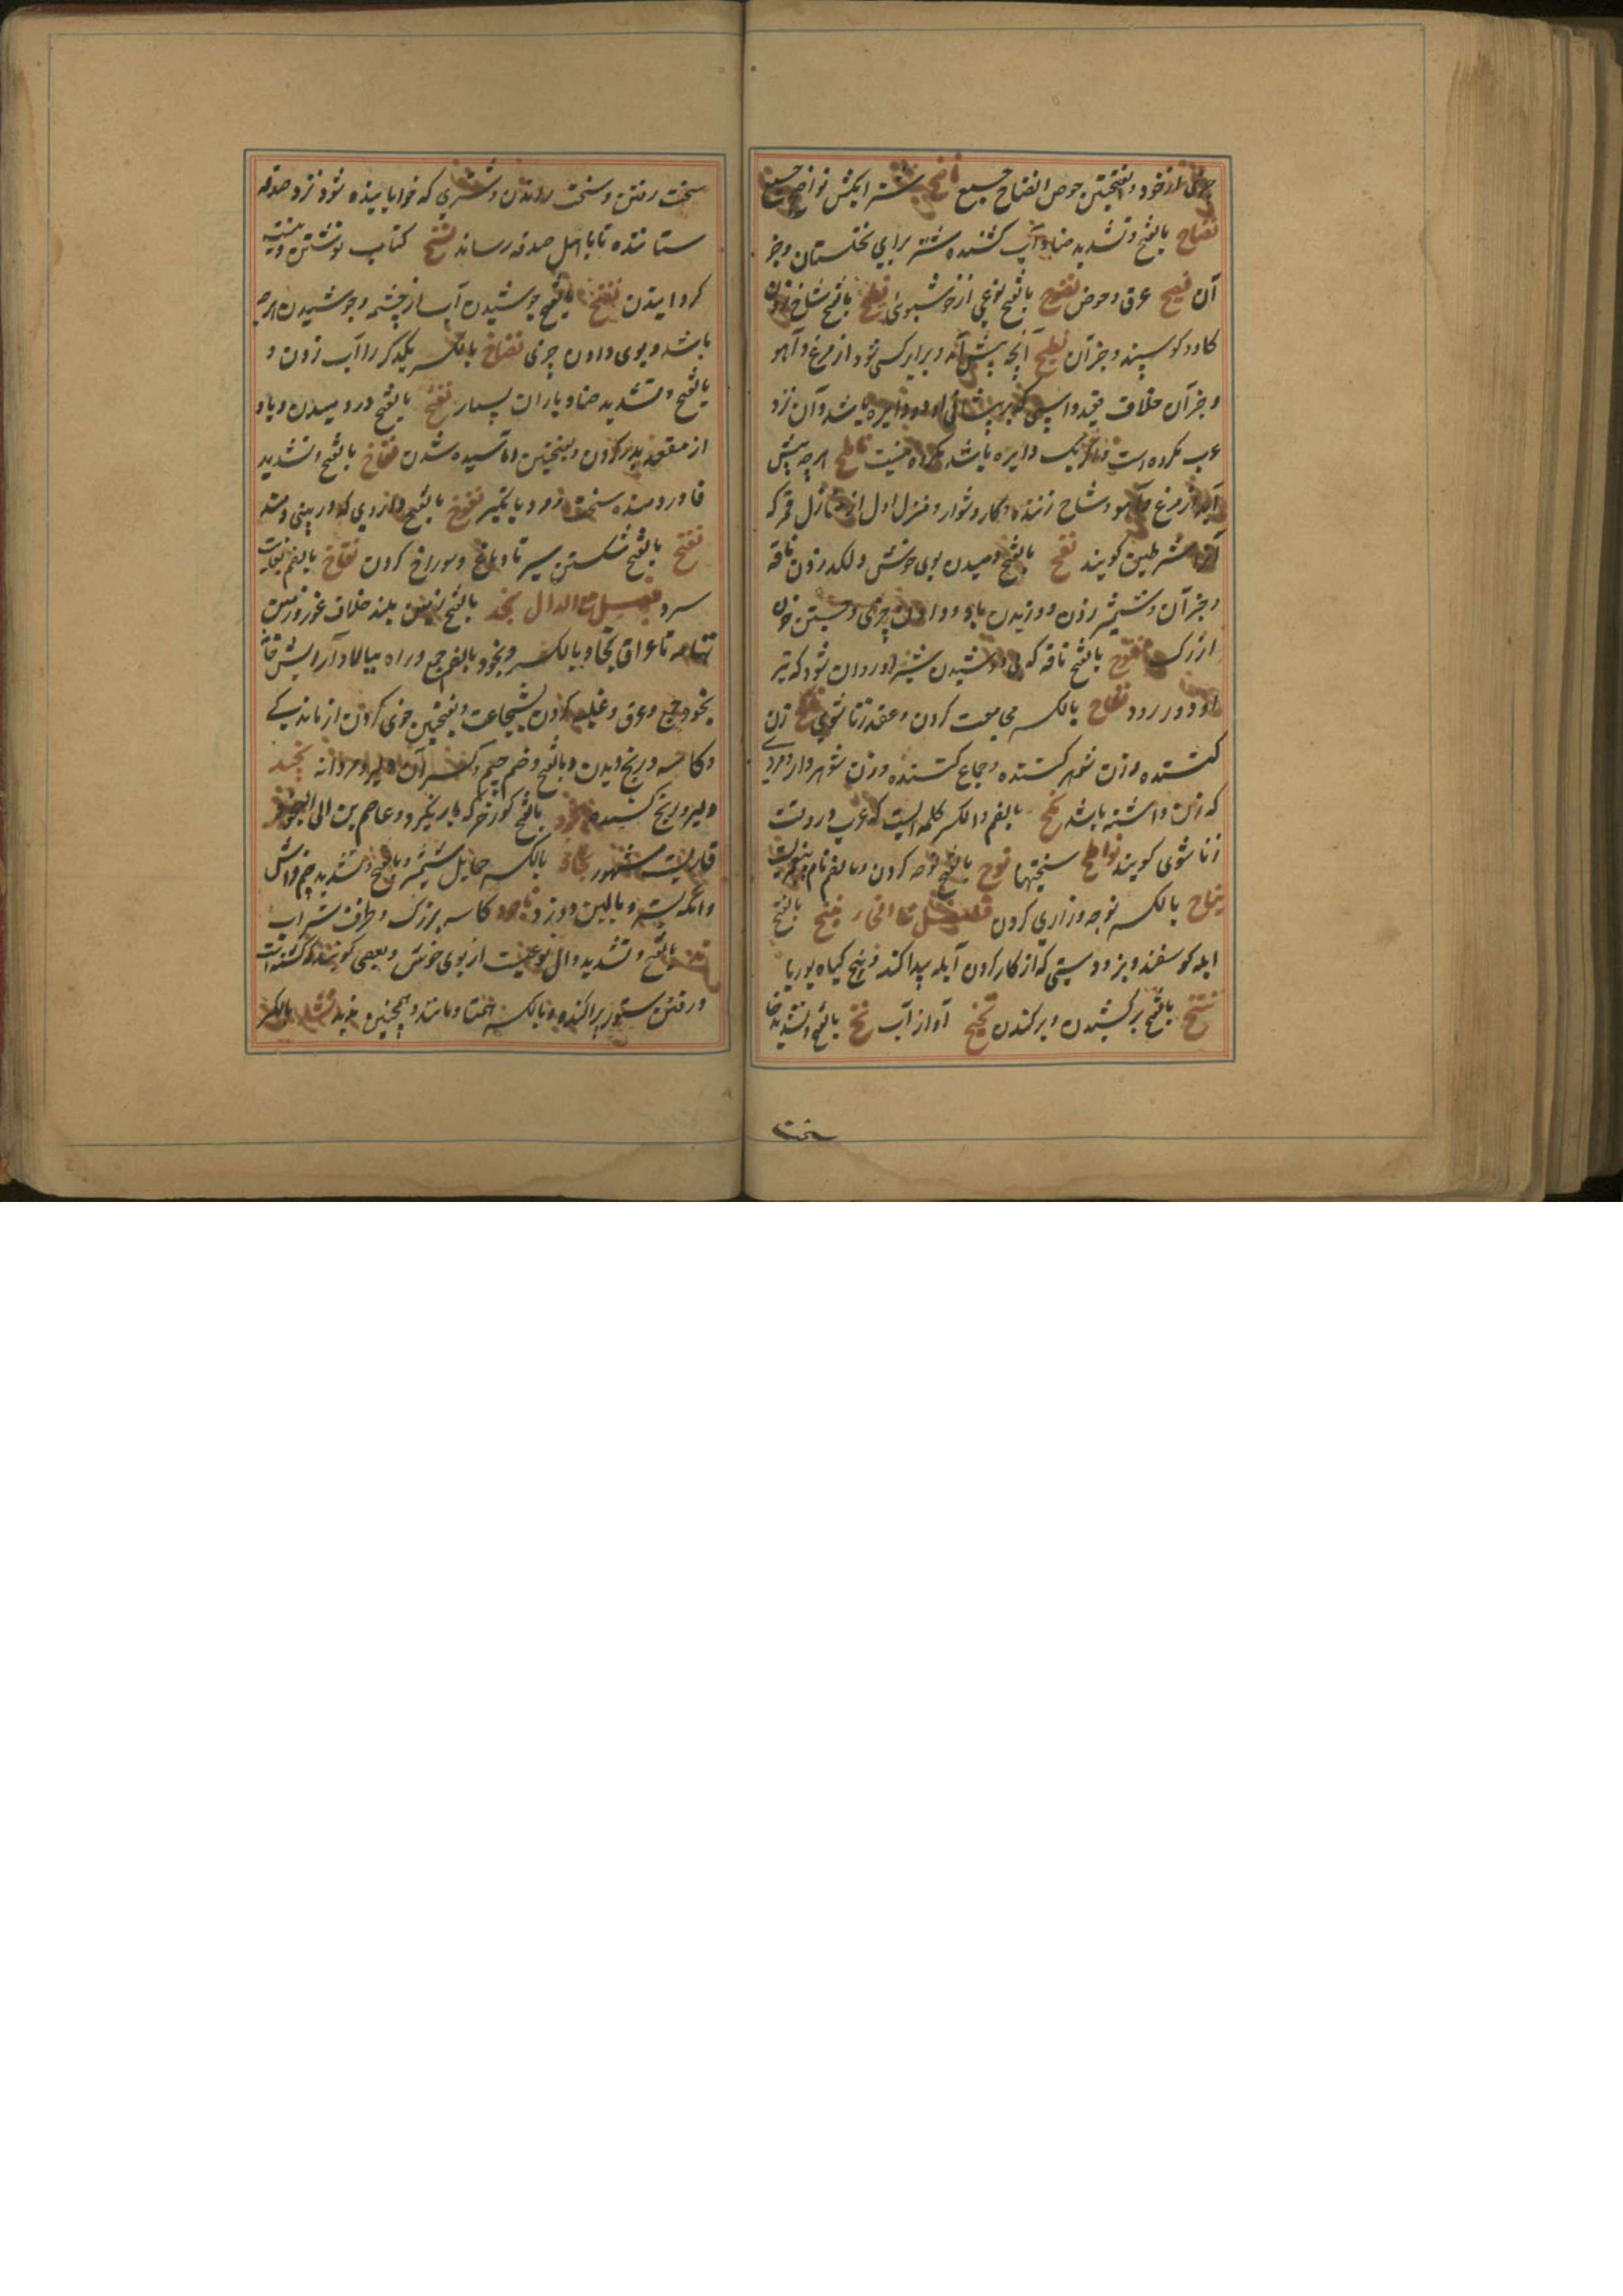 چیزی از خود و بفتحتین حوض انضاح جمع ناضح شتر آبکش نواضح جمع
نضاح بالفتح و تشدید ضاد آب کشنده شتر برای نخلستان و جز
آن نضیح عرق و حوض نضوح بالفتح نوعی از خوشبوی نطح بالفتح شاخ زدن
کاو و کوسپند و جز آن نطیح آنچه پیش آید و برابر کسی شود از مرغ و آهو
و جز آن خلاف قعید و اسپی که بر پیشانی او دو دایره باشد و آن نزد
عرب مکروه است و اگر یک دایره باشد مکروه نیست ناطح هر چه پیش
آید از مرغ و آهو و شاخ زننده و کار دشوار و منزل اول از منازل قمر که
آنرا شرطین کویند نفح بالفتح دمیدن بوی خوش و لکد زدن ناقه
و جز آن و شمشیر زدن و وزیدن باد و دادن چیزی و جستن خون
از رک نفوح بالفتح ناقه که بی دوشیدن شیر او روان شود که تیر
او دور رود نکاح بالکسر مجامعت کردن و عقد زناشوی ناکح زن
کننده و زن شوهر کننده و جماع کننده و زن شوهر دار و مردی
که زن داشته باشد نکح بالضم و الکسر کلمه ایست که عرب در وقت
زناشوی کویند نواطح سختیها نوح بالفتح نوحه کردن و بالضم نام پیغمبریست
نیاح بالکسر نوحه و زاری کردن فصل مع الخاء نبخ بالفتح
آبله کوسفند و بز و دستی که از کار کردن آبله پیدا کند و بیخ کیاه بوریا
نتخ بالفتح برکشیدن و برکندن نجیخ آواز آب نخ بالفتح و تشدید خا
سخت رفتن و سخت راندن و شتری که خوابانیده شود نزد صدقه
ستاننده تا با اهل صدقه رساند نسخ کتاب نوشتن و نیست
کردانیدن نضخ بالفتح جوشیدن آب از چشمه و جوشیدن هرچه
باشد و بوی دادن چیزی نضاخ بالکسر یکدیکر را آب زدن و
بالفتح و تشدید ضاد باران بسیار نفخ بالفتح در دمیدن و باد
از مقعد بدر کردن و بفتحتین آماسیده شدن نفاخ بالفتح و تشدید
فا در دمنده سخت و مرد باتکبر نفوخ بالفتح داروی که در بینی دمند
نقخ بالفتح شکستن سر تا دماغ و سوراخ کردن نقاخ بالضم بغایت
سرد فصل مع الدال نجد بالفتح زمین بلند خلاف غور و زمین
تهامه تا عراق نجاد بالکسر و نجود بالضم جمع و راه ببالا و آرایش خانه
نجود جمع و عرق و غلبه کردن بشجاعت و بفتحتین خوی کردن از ماندکی
و کاسه و رنج دیدن و بالفتح و ضم جیم و کسر آن دلیر و مردانه نجید
دلیر و رنج کشیده نجود بالفتح کورخر که بار نکیرد و عاصم بن ابی النجود
قاریست مشهور نجاد بالکسر حمایل شمشیر و بالفتح و تشدید جیم فراش
و آنکه بستر و بالین دوزد ناجود کاسه بزرک و ظرف شراب
ند بالفتح و تشدید دال نوعیست از بوی خوش و بعضی کویند که کشته است
و رفتن ستور پراکنده و بالکسر همتا و مانند و همچنین ندید نشد بالکسر